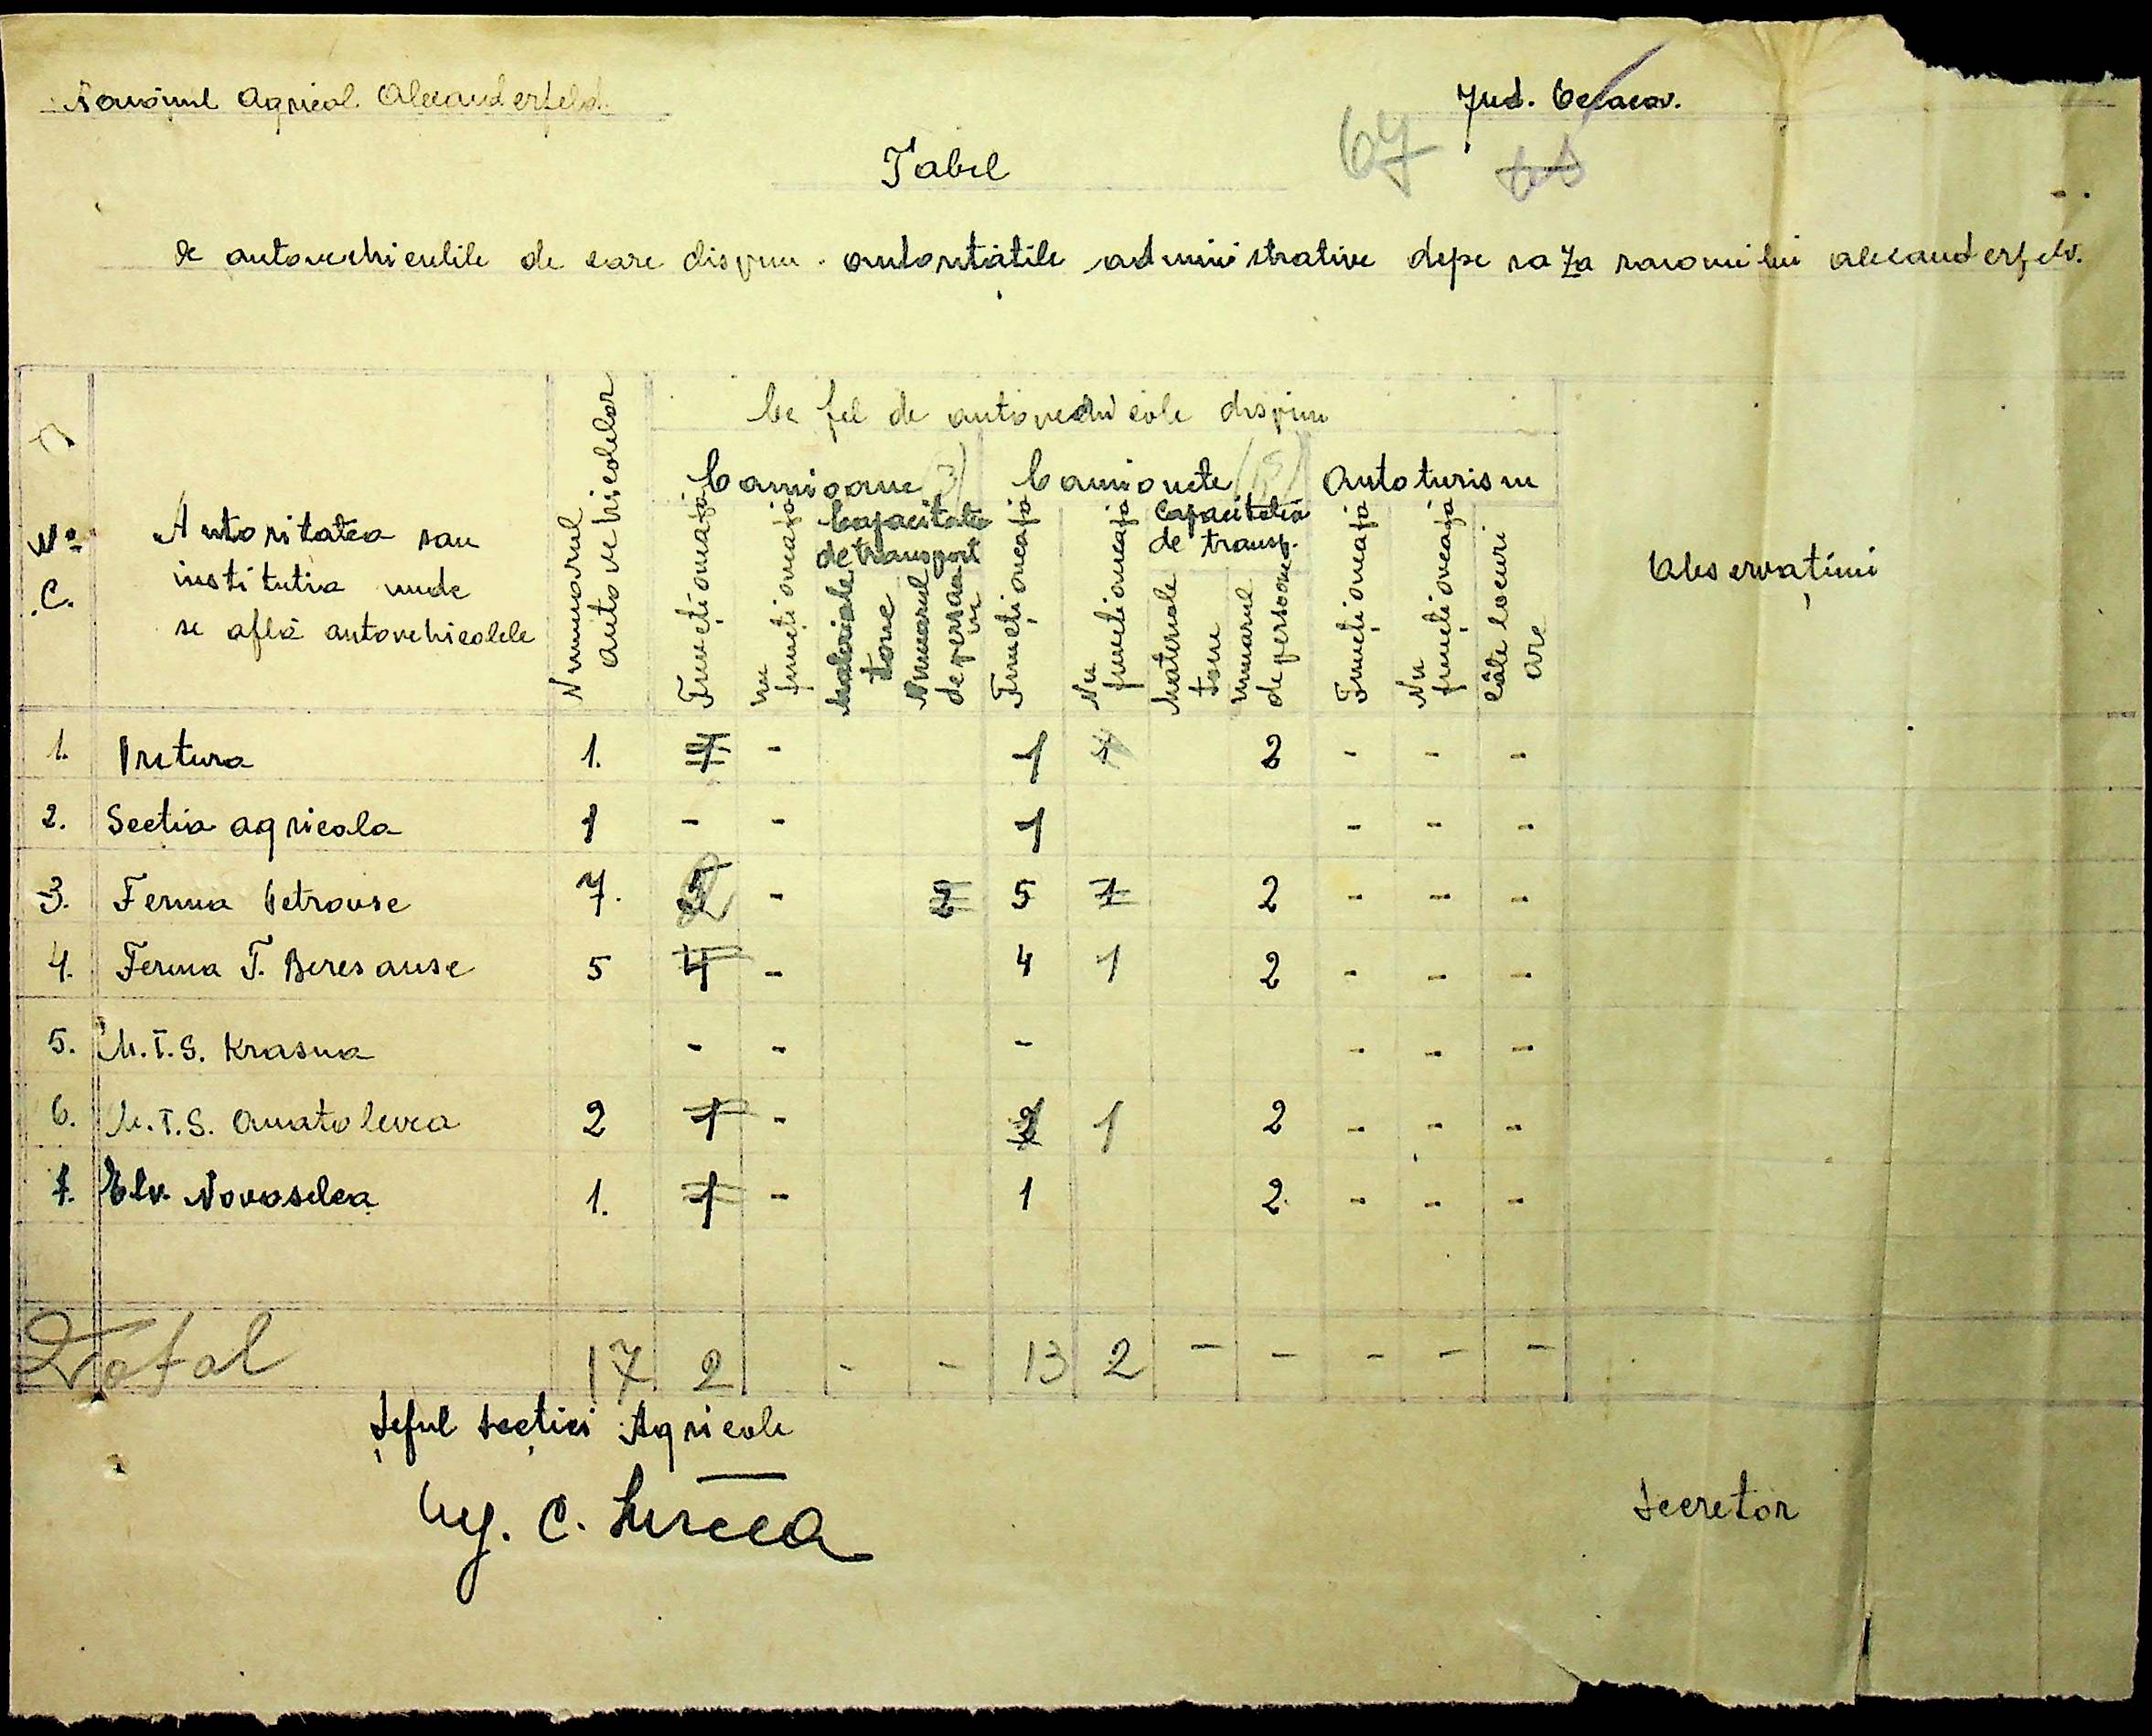 Raionul Agricol Alexanderfeld.
Jud. Oceacov.
67
Tabel
de autovehiculile de care dispun autoritățile administrative depe raza raionului alexanderfeld.
No. C.
Autoritatea sau institutia unde se află autovehicolele
Numărul autovehicolelor
Ce fel de autovehicole dispun
Camioane Camionete Autoturism
Observațiuni
Funcționează
Nu funcționează
Capacitatea de transport
Materiale tone
Numărul de persoane
Funcționează
Nu funcționează
Capacitatea de transp.
Materiale tone
Numărul de persoane
Funcționează
Nu funcționează
Câte locuri are
1. Pretura 1. 1 - 1 1 2 - - -
2. Sectia agricola 1 - - 1 - - -
3. Ferma Petrovse 7. 2 - 2 5 1 2 - - -
4. Ferma T. Beresanse 5 4 - 4 1 2 - - -
5. M.T.S. Krasna - - - - - -
6. M.T.S. Anatolevca 2 1 - 1 1 2 - - -
7. Elv. Novoselca 1. 1 - 1 2. - - -
Total 17 2 - - 13 2 - - - - -
Șeful Secției Agricole
Ing. C. Mircea
Secretar